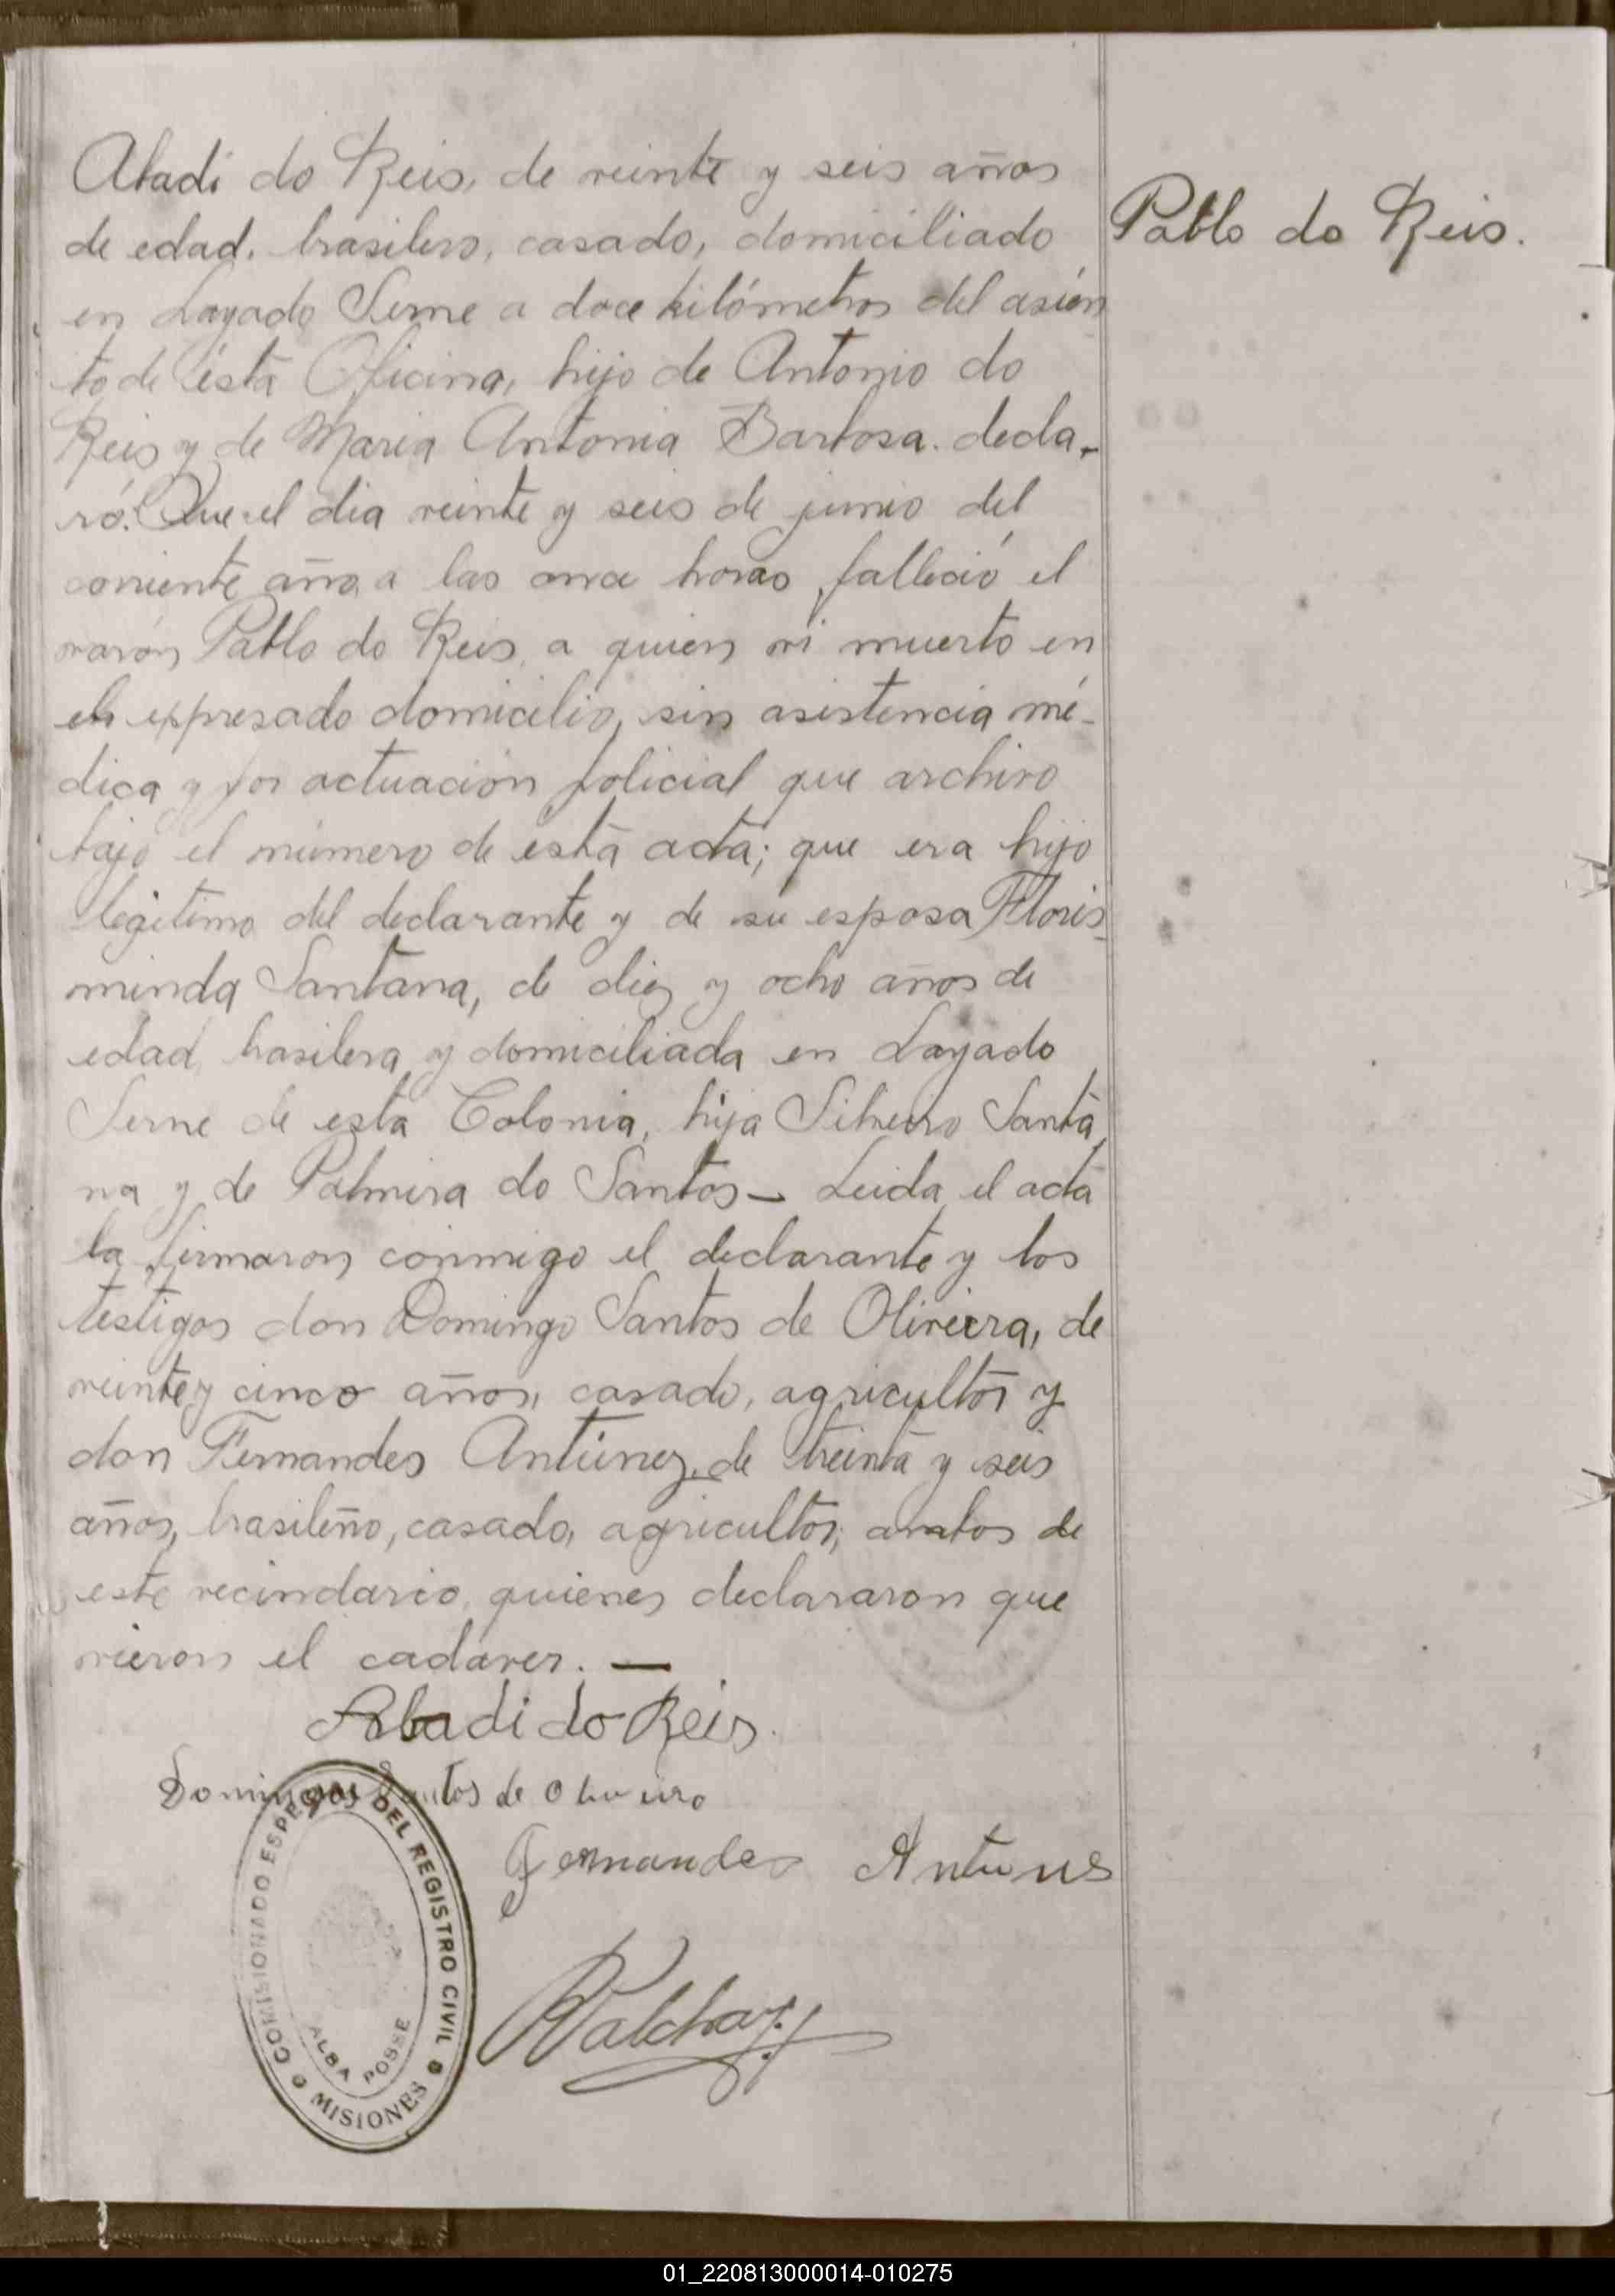 Abadi do Reis, de veinte y seis años
de edad, brasilero, casado, domiciliado
en Layado Serne a doce kilómetros del asien
to de ésta Oficina, hijo de Antonio do
Reis y de Maria Antonia Barbosa. decla-
ró: Que el dia veinte y seis de junio del
corriente año, a las once horas, falleció el
varón Pablo do Reis, a quien vi muerto en
el expresado domicilio, sin asistencia mé-
dica y por actuación policial que archivo
bajo el número de esta acta; que era hijo
legítimo del declarante y de su esposa Floris-
minda Santana, de diez y ocho años de
edad, brasilera y domiciliada en Layado
Serne de esta Colonia, hija Santa
na y de Palmira do Santos — Leida el acta
la firmaron conmigo el declarante y los
testigos don Domingo Santos de Oliveira, de
veinte y cinco años, casado, agricultor y
don Fernandes Antúnez, de treinta y seis
años, brasileño, casado, agricultor, ambos de
este vecindario, quienes declararon que
vieron el cadáver. —
Pablo do Reis.
Abadi do Reis.
Domingos Santos de Oliveiro
Fernandes Antunes
COMISIONADO ESPECIAL DEL REGISTRO CIVIL
ALBA POSSE
MISIONES
01_220813000014-010275